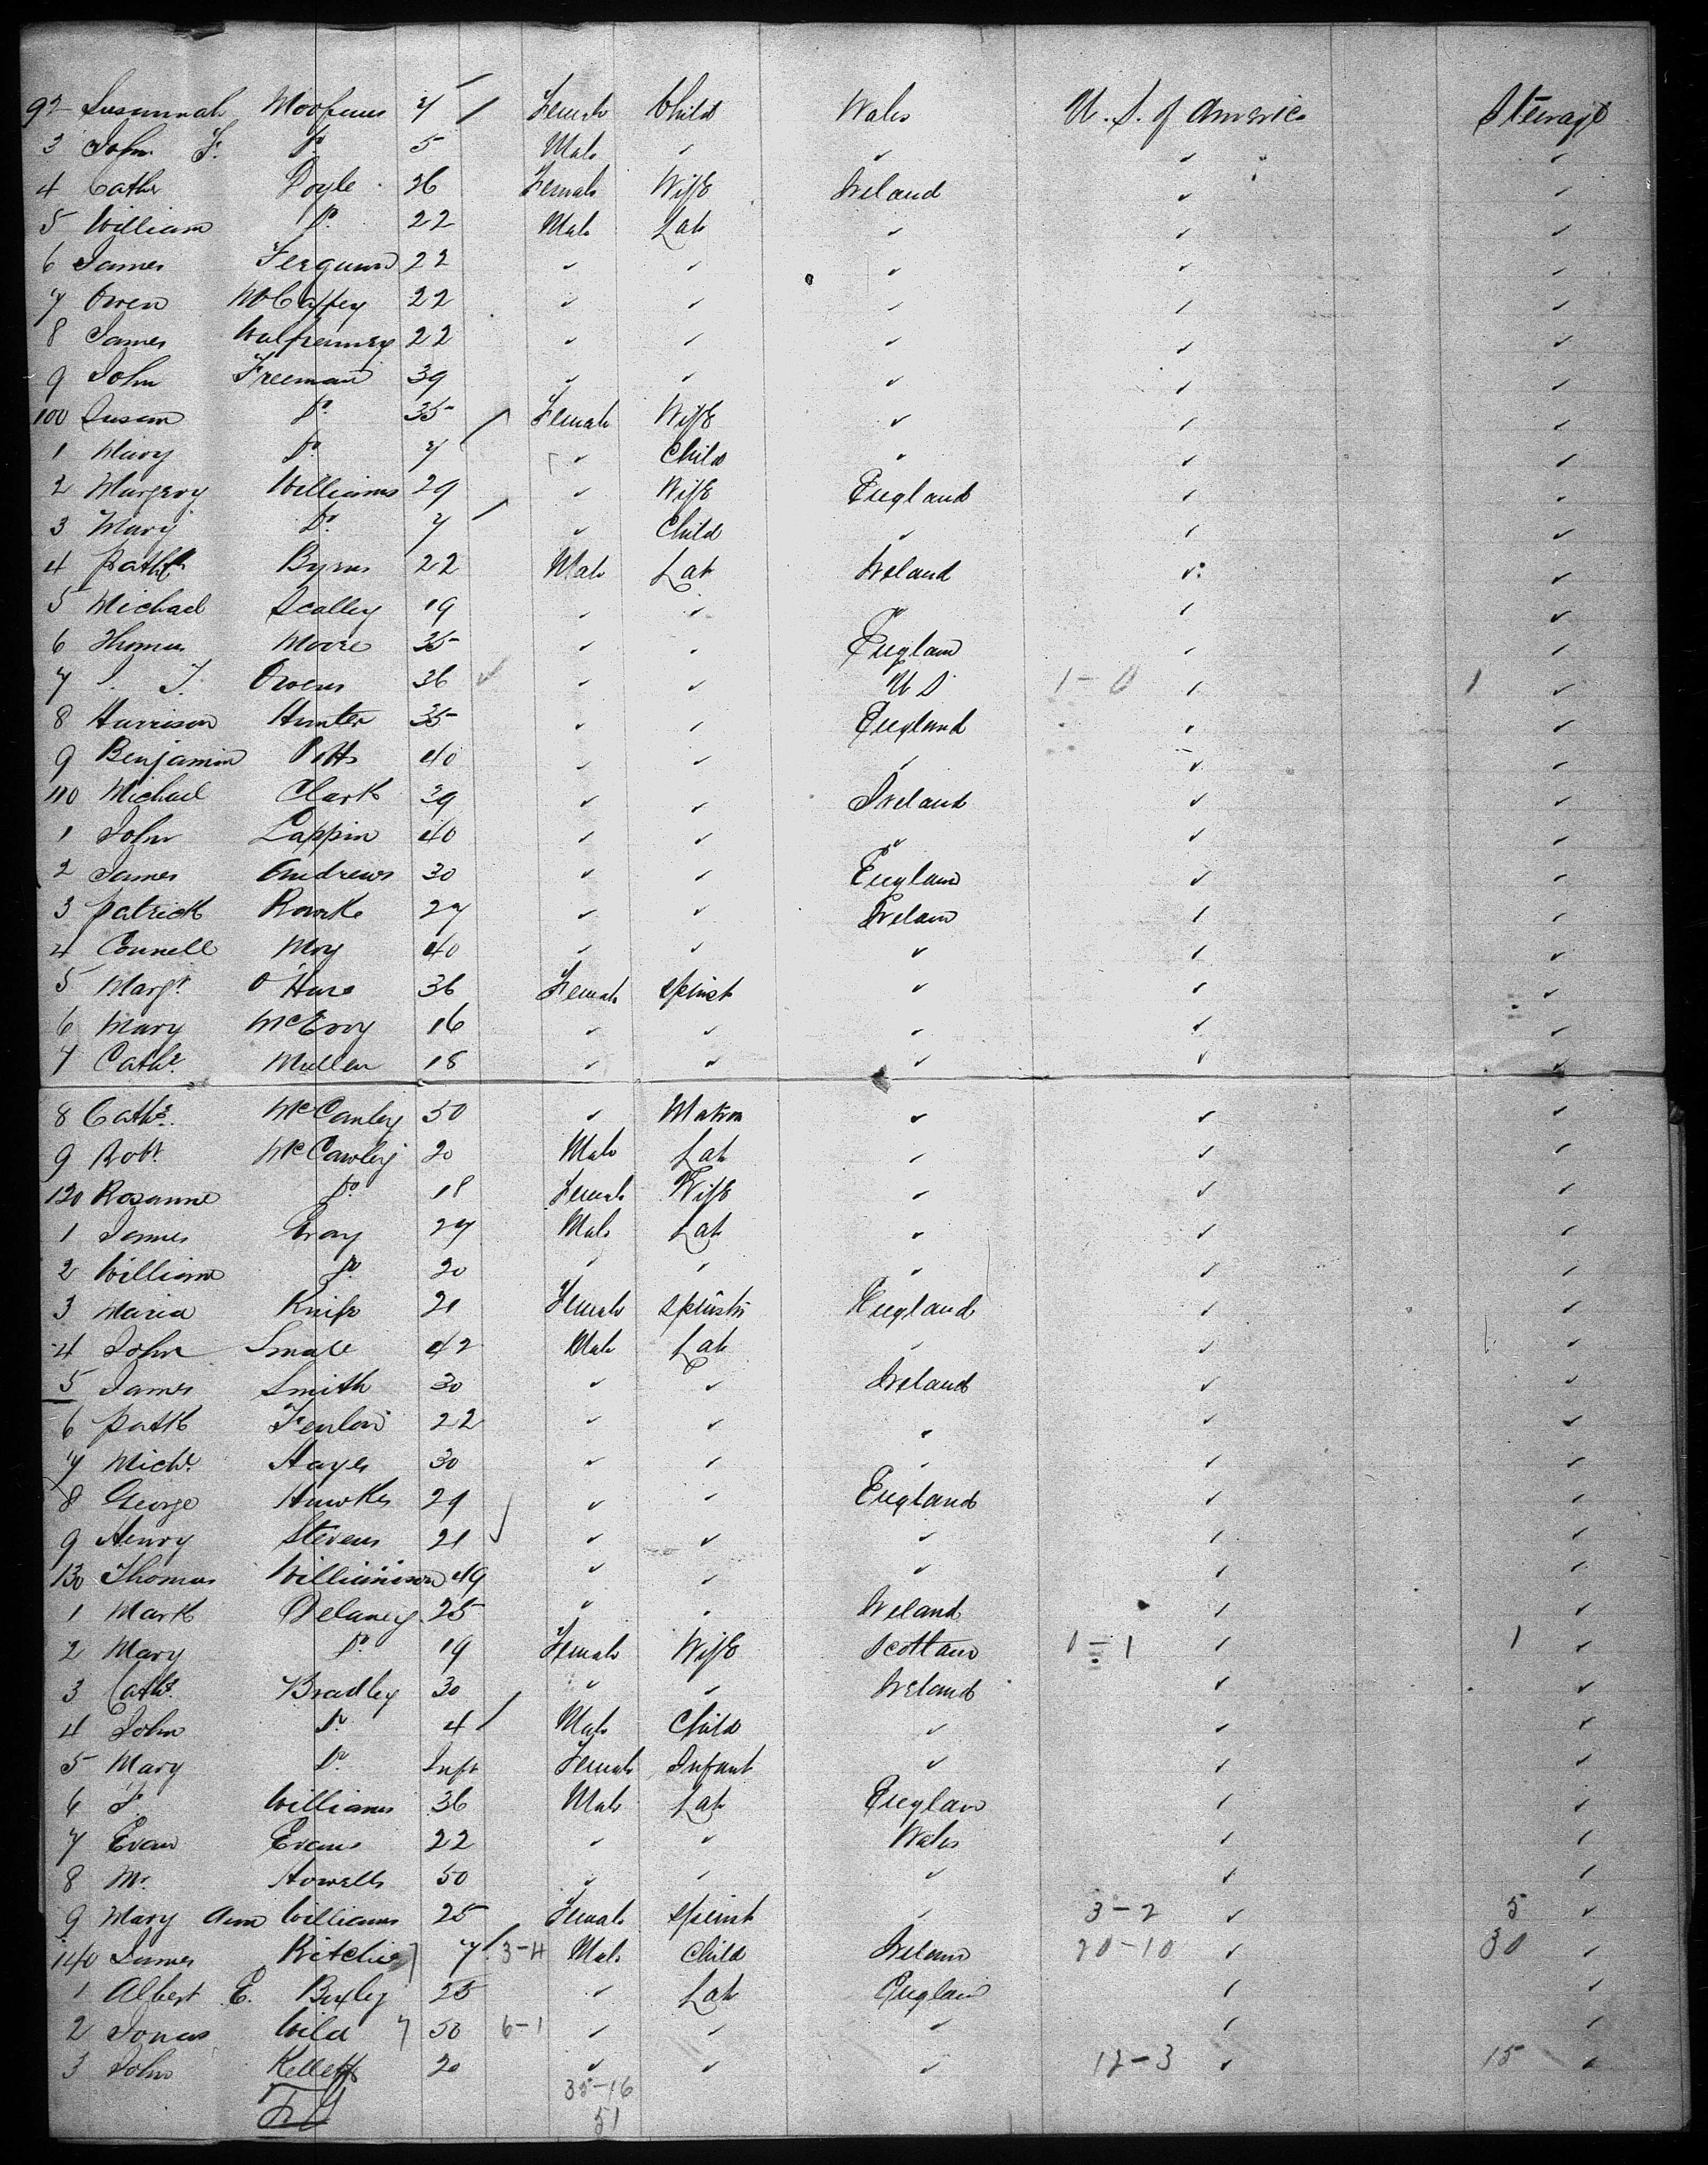 92 Susannah 7 Female Child Wales U. S. of America Steerage
3 John F. Do 5 Male ✓ ✓ ✓ ✓
4 Cathe Doyle 26 Female Wife Ireland ✓ ✓
5 William Do 22 Male Lab ✓ ✓ ✓
6 James Ferguson 22 ✓ ✓ ✓ ✓ ✓
7 Owen McCaffey 22 ✓ ✓ ✓ ✓ ✓
8 James 22 ✓ ✓ ✓ ✓ ✓
9 John Freeman 39 ✓ ✓ ✓ ✓ ✓
100 Susan Do 35 Female Wife ✓ ✓ ✓
1 Mary Do 7 ✓ Child ✓ ✓ ✓
2 Margery Williams 29 ✓ Wife England ✓ ✓
3 Mary Do 7 ✓ Child ✓ ✓ ✓
4 Patk Byrns 22 Male Lab Ireland ✓ ✓
5 Michael Scalley 19 ✓ ✓ ✓ ✓ ✓
6 Thomas Moore 35 ✓ ✓ England ✓ ✓
7 J. J. Owens 36 ✓ ✓ ✓ U S 1-0 ✓ 1 ✓
8 Harrison Hunter 35 ✓ ✓ England ✓ ✓
9 Benjamin Potts 40 ✓ ✓ ✓ ✓ ✓
110 Michael Clark 39 ✓ ✓ Ireland ✓ ✓
1 John Lappin 40 ✓ ✓ ✓ ✓ ✓
2 James Andrews 30 ✓ ✓ England ✓ ✓
3 Patrick Rourke 27 ✓ ✓ Ireland ✓ ✓
4 Connell Moy 40 ✓ ✓ ✓ ✓ ✓
5 Margt O'Hara 36 Female Spinst ✓ ✓ ✓
6 Mary McEvoy 16 ✓ ✓ ✓ ✓ ✓
7 Cathe Mullen 18 ✓ ✓ ✓ ✓ ✓
8 Cathe McCauley 50 ✓ Matron ✓ ✓ ✓
9 Robt McCawley 20 Male Lab ✓ ✓ ✓
120 Rosanne Do 18 Female Wife ✓ ✓ ✓
1 James Gray 27 Male Lab ✓ ✓ ✓
2 William Do 20 ✓ ✓ ✓ ✓ ✓
3 Maria Knipe 21 Female Spinstr England ✓ ✓
4 John Small 42 Male Lab ✓ ✓ ✓
5 James Smith 30 ✓ ✓ Ireland ✓ ✓
6 Patk Fenlon 22 ✓ ✓ ✓ ✓ ✓
7 Michl Hayes 30 ✓ ✓ ✓ ✓ ✓
8 George Hawkes 29 ✓ ✓ England ✓ ✓
9 Henry Stevens 21 ✓ ✓ ✓ ✓ ✓
130 Thomas Williamson 49 ✓ ✓ ✓ ✓ ✓
1 Mark Delaney 25 ✓ ✓ Ireland ✓ ✓
2 Mary Do 19 Female Wife Scotland 0-1 ✓ 1 ✓
3 Cathe Bradley 30 ✓ ✓ Ireland ✓ ✓
4 John Do 4 Male Child ✓ ✓ ✓
5 Mary Do Inft Female Infant ✓ ✓ ✓
6 Williams 36 Male Lab England ✓ ✓
7 Evan Evans 22 ✓ ✓ Wales ✓ ✓
8 Mr Howells 50 ✓ ✓ ✓ ✓ ✓
9 Mary Ann Williams 25 Female Spinst ✓ 3-2 ✓ 5 ✓
140 James Ritchie 7 3-4 Male Child Ireland 20-10 ✓ 30 ✓
1 Albert E. Bexley 25 ✓ Lab England ✓ ✓
2 Jonas Wild 50 6-1 ✓ ✓ ✓ ✓ ✓
3 John Kellett 20 ✓ ✓ ✓ 12-3 ✓ 15 ✓
35-16
51